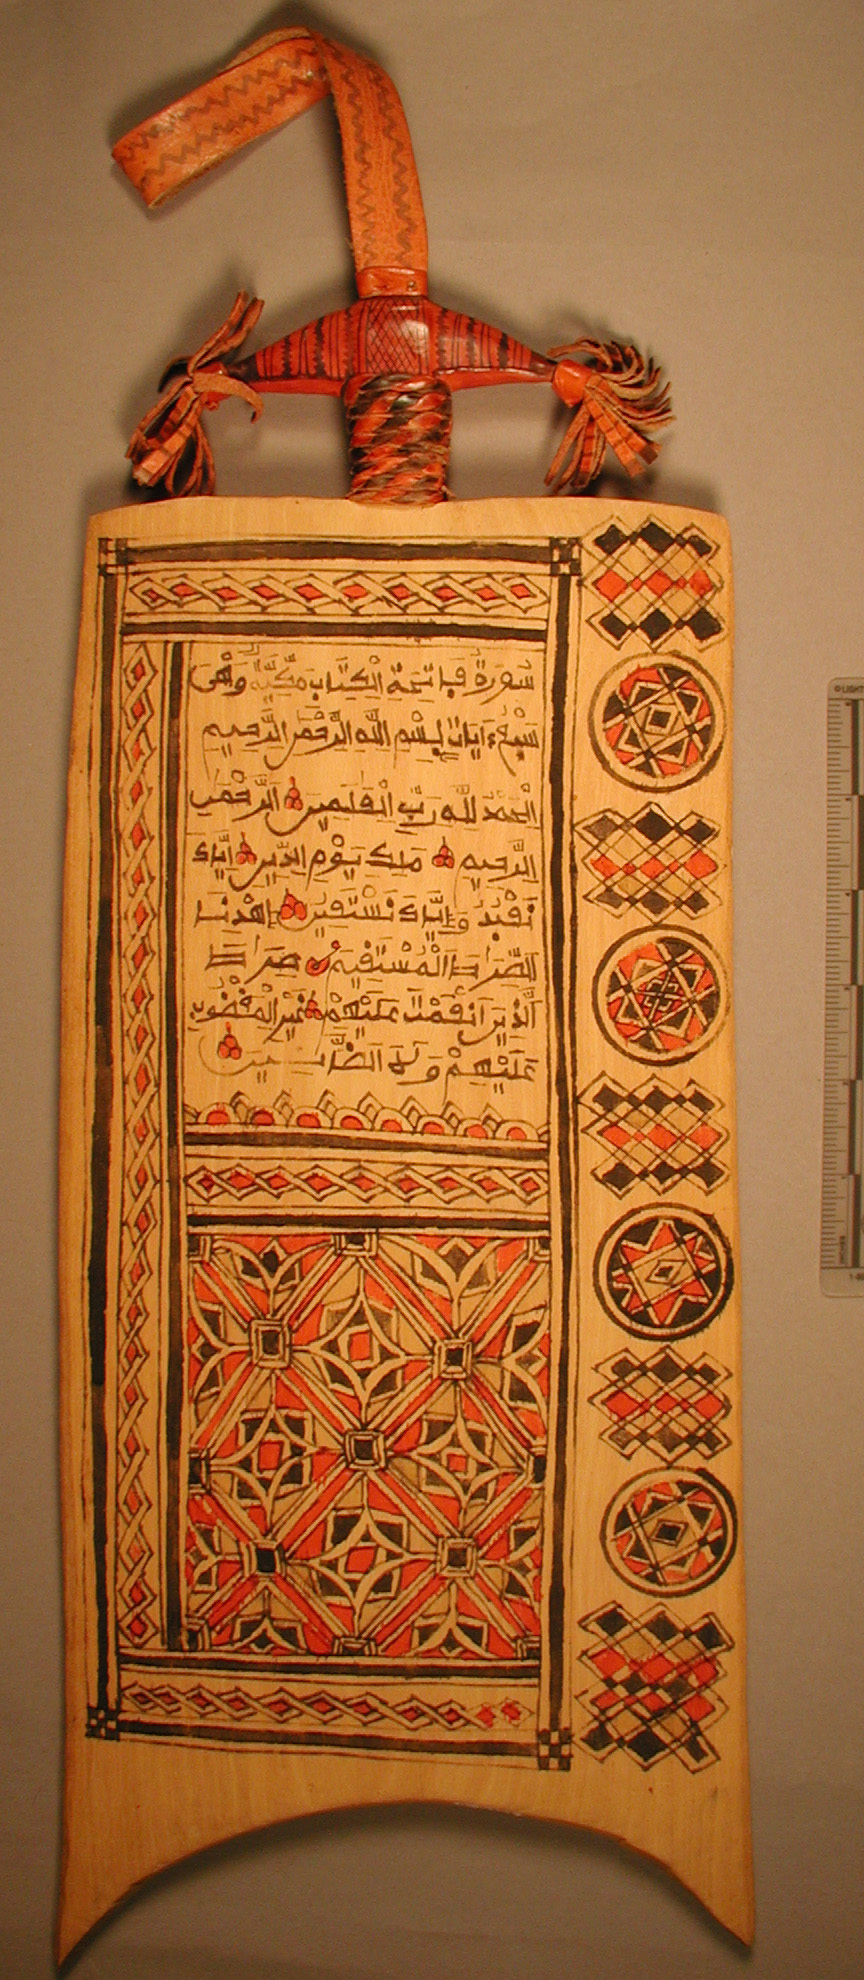 سُورَةُ فَاتِحَةِ الْكِتَٰبِ مَكِّيَّةٌ وَهْيَ
سَبْعُ ءَايَاتٍ بِسْمِ اللَّهِ الرَّحْمَٰنِ الرَّحِيمِ
الْحَمْدُ لِلَّهِ رَبِّ الْعَٰلَمِينَ الرَّحْمَٰنِ
الرَّحِيمِ مَلِكِ يَوْمِ الدِّينِ إِيَّاكَ
نَعْبُدُ وَإِيَّاكَ نَسْتَعِينُ اهْدِنَا
الصِّرَاطَ الْمُسْتَقِيمَ صِرَاطَ
الَّذِينَ أَنْعَمْتَ عَلَيْهِمْ غَيْرِ الْمَغْضُوبِ
عَلَيْهِمْ وَلَا الضَّالِّينَ